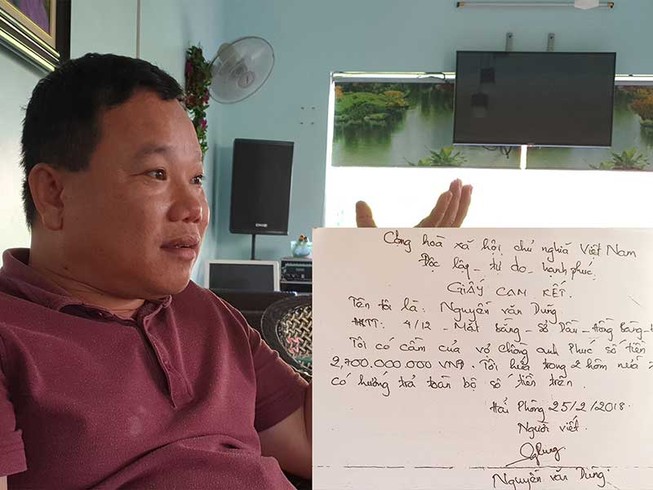 Cộng hoà xã hội chủ nghĩa Việt Nam
Độc lập - tự do - hạnh phúc.
GIẤY CAM KẾT.
Tên tôi là: Nguyễn Văn Dũng
HKTT: 4/12 - Mặt bằng - Sở Dầu - Hồng Bàng -
Tôi có cầm của vợ chồng anh Phúc số tiền
2,700.000.000 VNĐ. Tôi hứa trong 2 hôm nữa
có hướng trả toàn bộ số tiền trên.
Hải Phòng 25/2/2018.
Người viết.
Nguyễn Văn Dũng